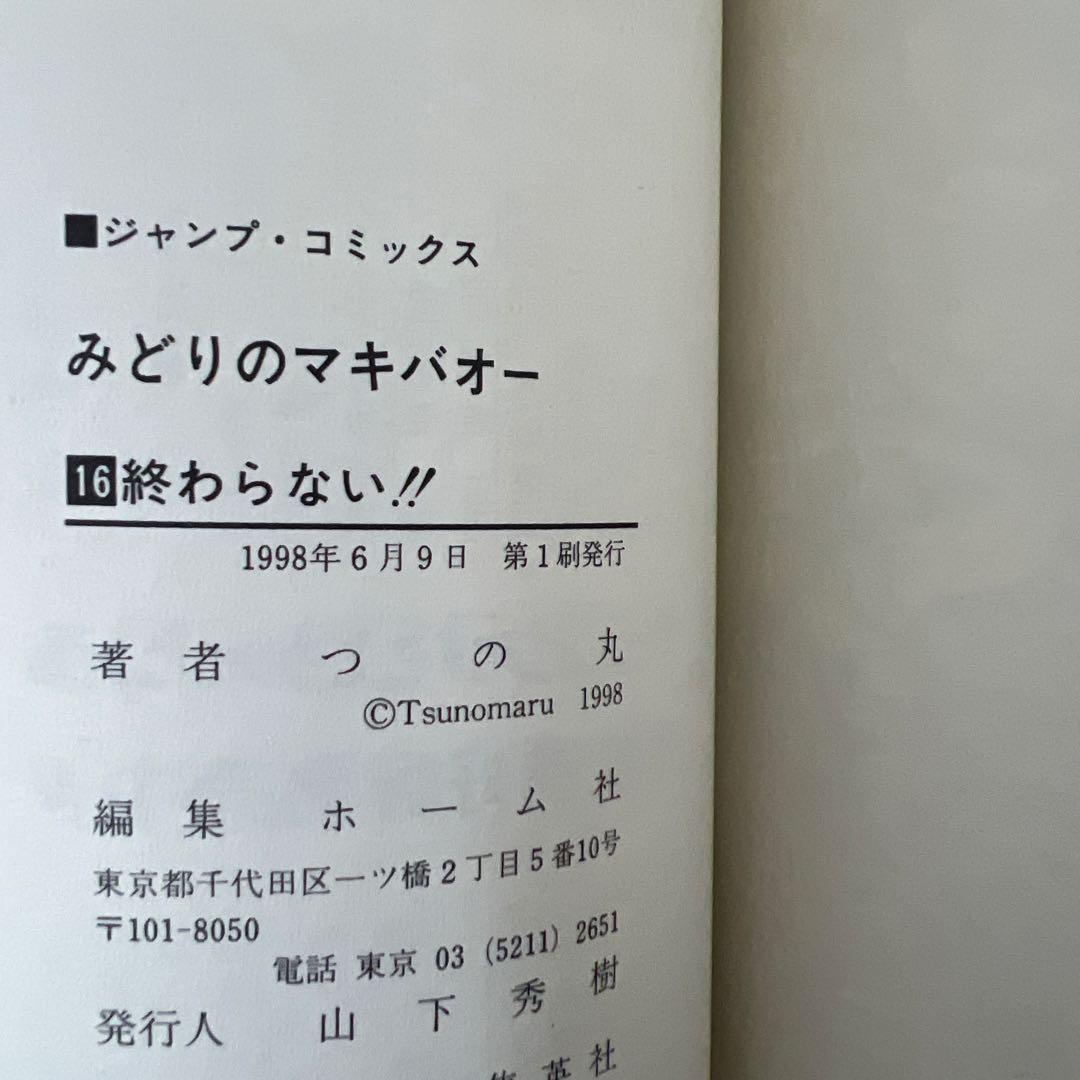 ■ジャンプ・コミックス
みどりのマキバオー
16終わらない!!
1998年6月9日 第1刷発行
著者 つの丸
©Tsunomaru 1998
編集 ホーム社
東京都千代田区一ツ橋2丁目5番10号
〒101-8050
電話 東京 03 (5211) 2651
発行人 山下秀樹
英社